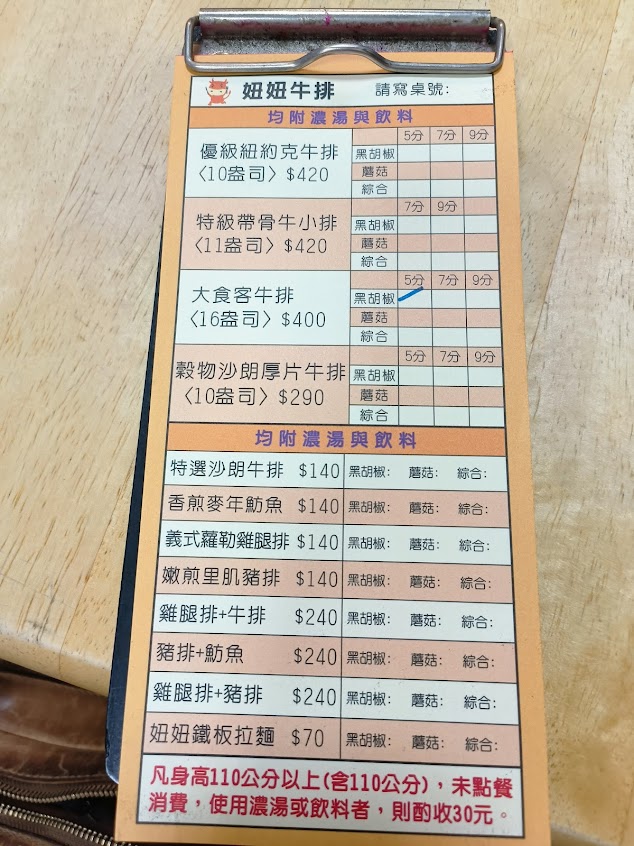 妞妞牛排 請寫桌號:
均附濃湯與飲料
優級紐約克牛排
〈10盎司〉$420
5分 7分 9分
黑胡椒
蘑菇
綜合
特級帶骨牛小排
〈11盎司〉$420
7分 9分
黑胡椒
蘑菇
綜合
大食客牛排
〈16盎司〉$400
5分 7分 9分
黑胡椒
蘑菇
綜合
穀物沙朗厚片牛排
〈10盎司〉$290
5分 7分 9分
黑胡椒
蘑菇
綜合
均附濃湯與飲料
特選沙朗牛排 $140 黑胡椒: 蘑菇: 綜合:
香煎麥年魴魚 $140 黑胡椒: 蘑菇: 綜合:
義式蘿勒雞腿排 $140 黑胡椒: 蘑菇: 綜合:
嫩煎里肌豬排 $140 黑胡椒: 蘑菇: 綜合:
雞腿排+牛排 $240 黑胡椒: 蘑菇: 綜合:
豬排+魴魚 $240 黑胡椒: 蘑菇: 綜合:
雞腿排+豬排 $240 黑胡椒: 蘑菇: 綜合:
妞妞鐵板拉麵 $70 黑胡椒: 蘑菇: 綜合:
凡身高110公分以上(含110公分)，未點餐
消費，使用濃湯或飲料者，則酌收30元。